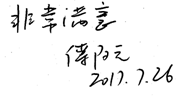 非常满意
傅阿元
2017.7.26